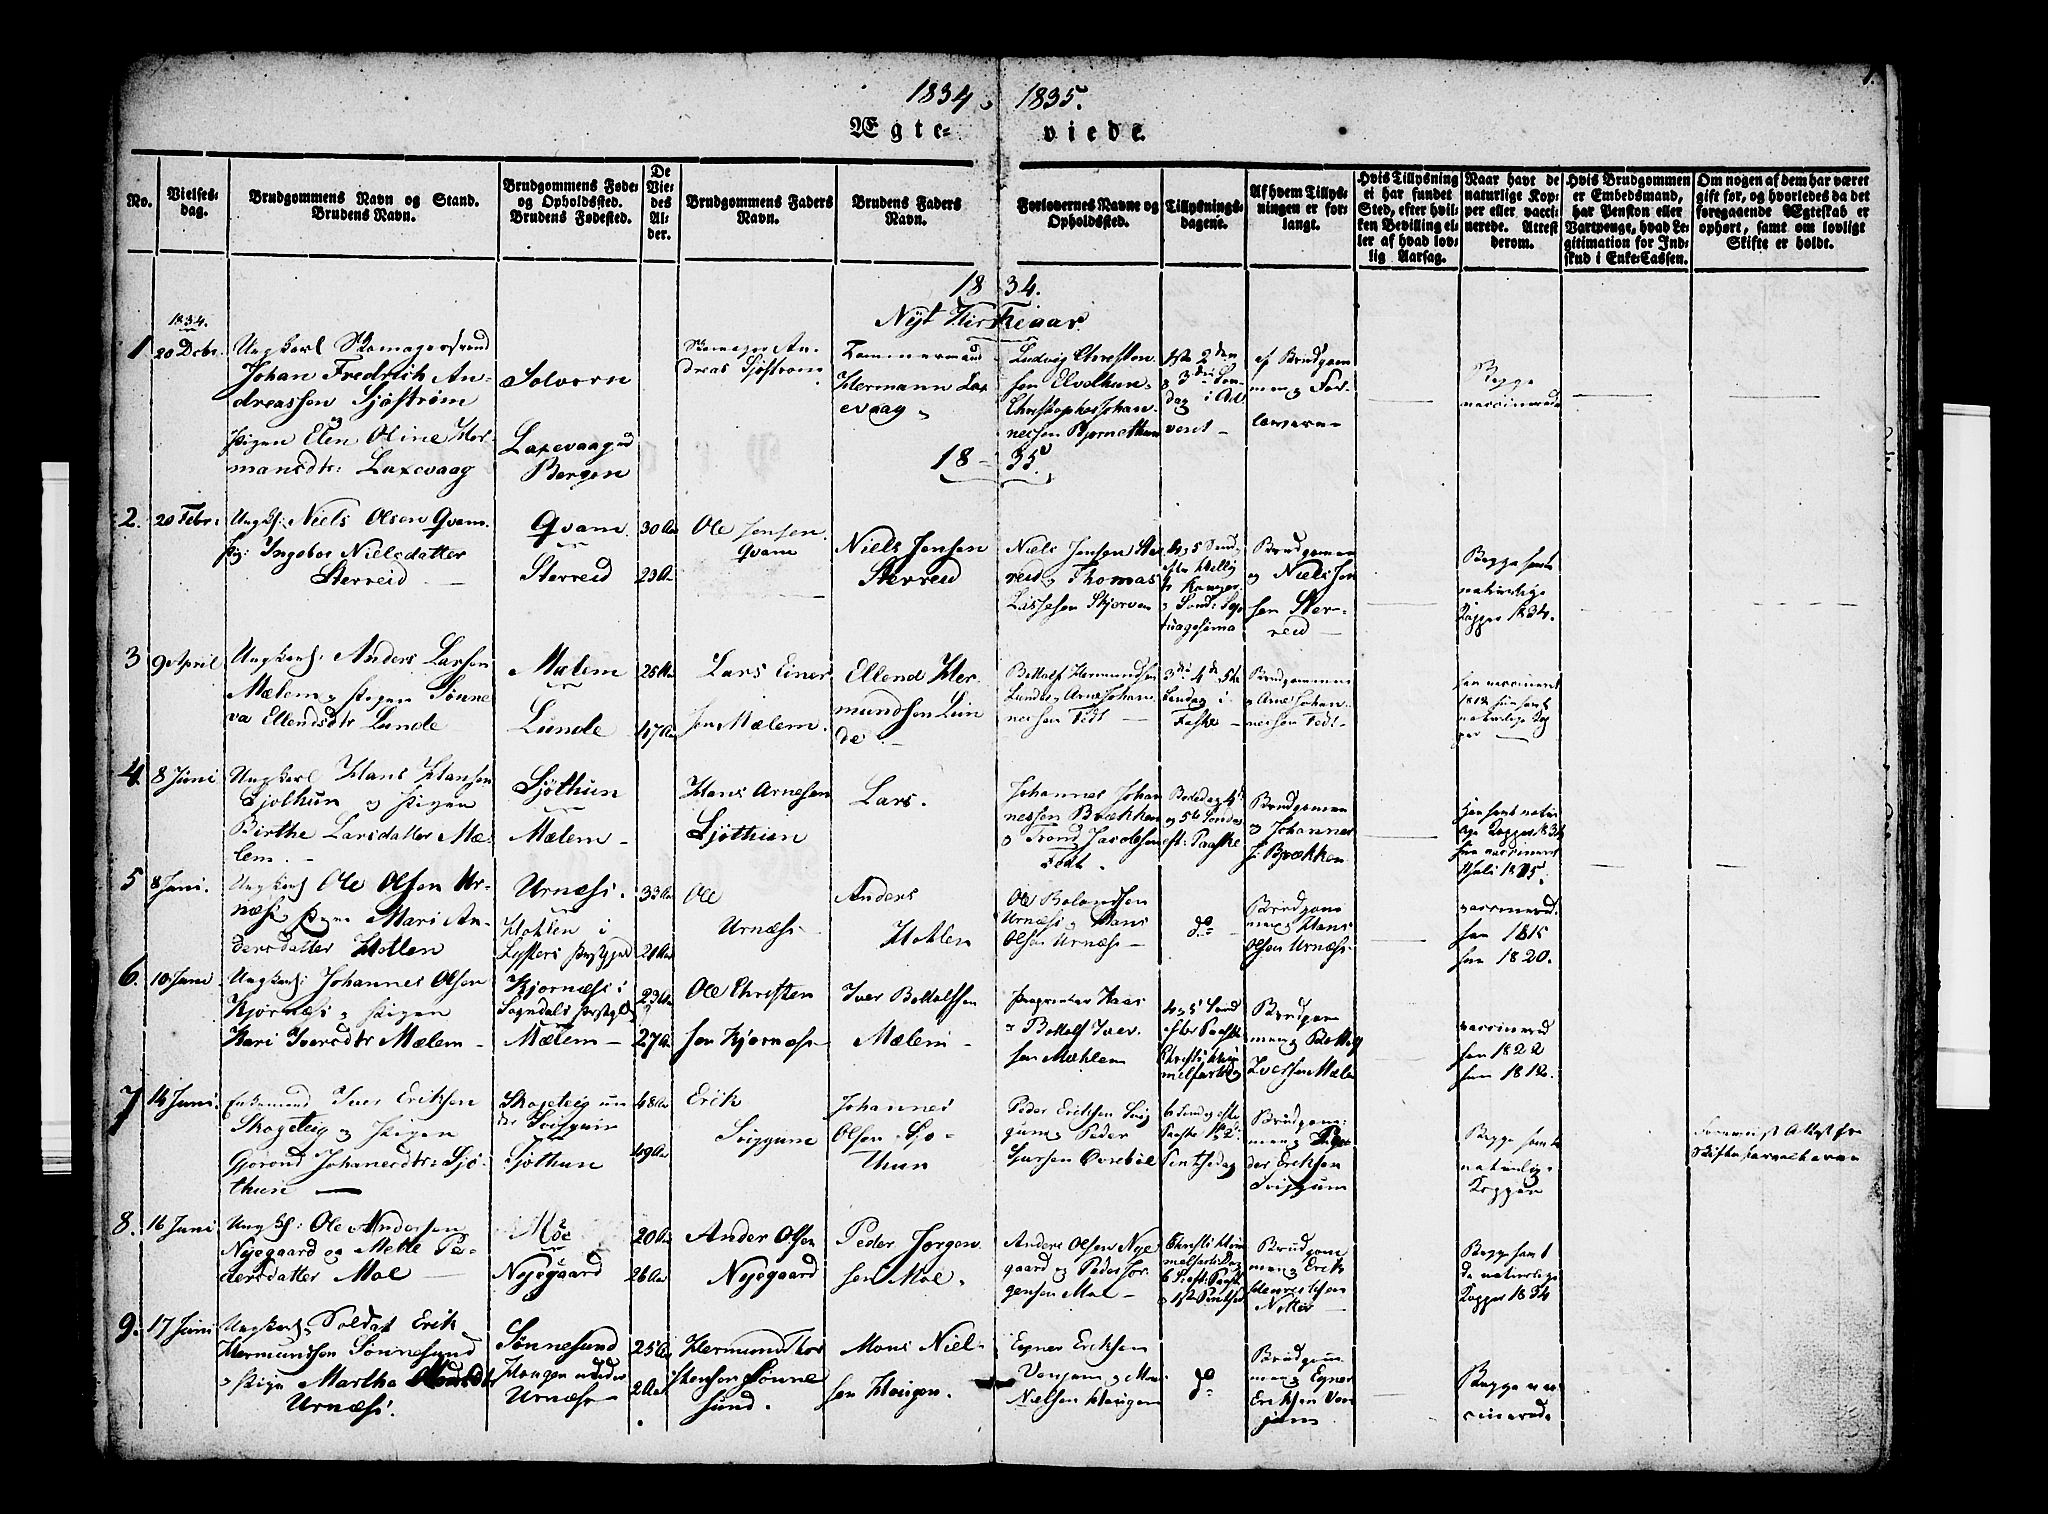 1.
1834 1835.
Ægte- viede.
No.
Vielses-
dag.
Brudgommens Navn og Stand.
Brudens Navn.
Brudgommens Føde-
og Opholdssted.
Brudens Fødested.
De
Vie-
des
Al-
der.
Brudgommens Faders
Navn.
Brudens Faders
Navn.
Forlovernes Navne og
Opholdssted.
Tillysnings-
dagene.
Af hvem Tillys-
ningen er for-
langt.
Hvis Tillysning
ei har fundet
Sted, efter hvil-
ken Bevilling el-
ler af hvad lov-
lig Aarsag.
Naar havt de
naturlige Kop-
per eller vacci-
nerede. Attest
derom.
Hvis Brudgommen
er Embedsmand,
har Pension eller
Vartpenge, hvad Le-
gitimation for Ind-
skud i Enke-Cassen.
Om nogen af dem har været
gift før, og hvorledes da det
foregaaende Ægteskab er
ophørt, samt om lovligt
Skifte er holdt.
1834.
Nyt Kirkeaar.
1834.
1 20 Dcbr.
Ungkarl Skomagersvend
Johan Fredrich An-
dreassen Sjøstrøm
og
Pigen Elen Oline Her-
mansdtr: Laxevaag
Solvorn
Laxevaag
Bergen
Skomager An-
dreas Sjøstrøm
Tømmermand
Hermann Lax
evaag
Ludvig Christen
sen Elvethun
Christopher Johan-
nessen Bjørnethun
1ste 2den
3die Søn-
dag i Ad
vent -
af Brudgom
men For
loverne
Begge
vaccinerede
1835.
2. 20 Febr.
Ungk: Niels Olsen Qvam.
Pig: Ingebor Nielsdatter
Sterreid
Qvam
Sterreid
30 Aar
23 Aar
Ole Jensen
Qvam
Niels Jensen
Sterreid
Niels Jensen Ster
reid og Thomas
Lassesen Skjerven
Brudgommen
og Niels Jen
sen Ster-
reid
Begge havt
naturlige
Kopper 1834.
3 9 April
Ungkarl: Anders Larsen
Mælem, Pigen Sønne
va Ellendsdtr Lunde
Mælem
Lunde
25 Aar
17 Aar
Lars Einer
sen Mælem.
Ellend Her-
mundsen Lun
de.
Bottolf Hermundsen
Lunde og Arne Johan-
nessen Fedt
3die 4de 5te
Søndag i
Faste
Brudgommen
og Arne Johan-
nessen Fedt
han vaccineret
1812 hun havt
naturlige Kop
per
4 8 Juni
Ungkarl Hans Hansen
Sjøthun og Pigen
Birthe Larsdatter Mæ-
lem.
Sjøthun
Mælem
Hans Arnesen
Sjøthun
Lars.
Johannes Johan
nessen Brækken
og Trond Jacobsen
Bededag 4de
og 5te Søndag
eft: Paaske
Brudgommen
og Johannes
J: Brækken
Han havt natur
lige Kopper 1834
hun vaccineret
5 8 Juni.
Ungkarl Ole Olsen Ur-
næs Pigen Mari An-
dersdatter Hotlen
Urnæs.
Hohlen i
Lysters Præstgjeld
33 Aar
21 Aar
Ole
Urnæs
Anders
Hohlen
Ole
Urnæs og Hans
Olsen Urnæs
do
Brudgom
men og Hans
Olsen Urnæs
vaccinered.
han 1815
hun 1820.
6. 10 Juni
Ungkarl: Johannes Olsen
Kjørnæs og Pigen
Kari Iversdtr Mælem
Kjørnæs i
Sogndals Prstgjld
Mælem
23 Aar
27 Aar
Ole Christen
sen Kjørnæs
Iver Bottolfsen
Mælem
Bottolf Iver-
sen Mæhlem
4 og 5 Sønd
efter Paaske
Christi Him
melfartsdag
Brudgom
men og Bottolf
Iversen Mælem
vaccinered
han 1822
hun 1812.
7 14 Juni.
Enkemand Iver Eriksen
Skageteig og Pigen
Gjørond Johanesdtr: Sjø-
thun
Skageteig un
der Svigum
Sjøthun
48 Aar
49 Aar
Erik
Sviggum
Johannes
Olsen Sjø-
thun
Peder Eriksen Svig
gum og Peder
Sjursen Ovrebøe
6 Søndag efter
Paaske 1ste 2den
Pintsedag
Brudgom-
men og Pe
der Eriksen
Sviggum
Begge havt
naturlige
Kopper
8. 16 Juni
Ungk: Ole Andersen
Nyegaard og Mette Pe-
dersdatter Moe
Moe
Nyegaard
20 Aar
26 Aar
Ander Olsen
Nyegaard
Peder Jørgen
sen Moe.
Anders Olsen Nye
gaard og Peder Jør
gensen Moe
Christi Him
melfarts Dag
Brudgom
men og Erik
Begge havt
de naturlige
Kopper 1834
9. 17 Juni
Ungkarl, Soldat Erik
Hermundsen Sønnesund
og Pige Martha Monsdtr
Urnæs.
Sønnesund
Haugen under
Urnæs
25 Aar
Hermund Thor
stensen Sønne
sund.
Mons Niel-
sen Haugen.
Egner Eriksen
Nielsen Haugen
do
Brudgom
men og Egner
Eriksen Ven
jum
Begge vac
cinerede